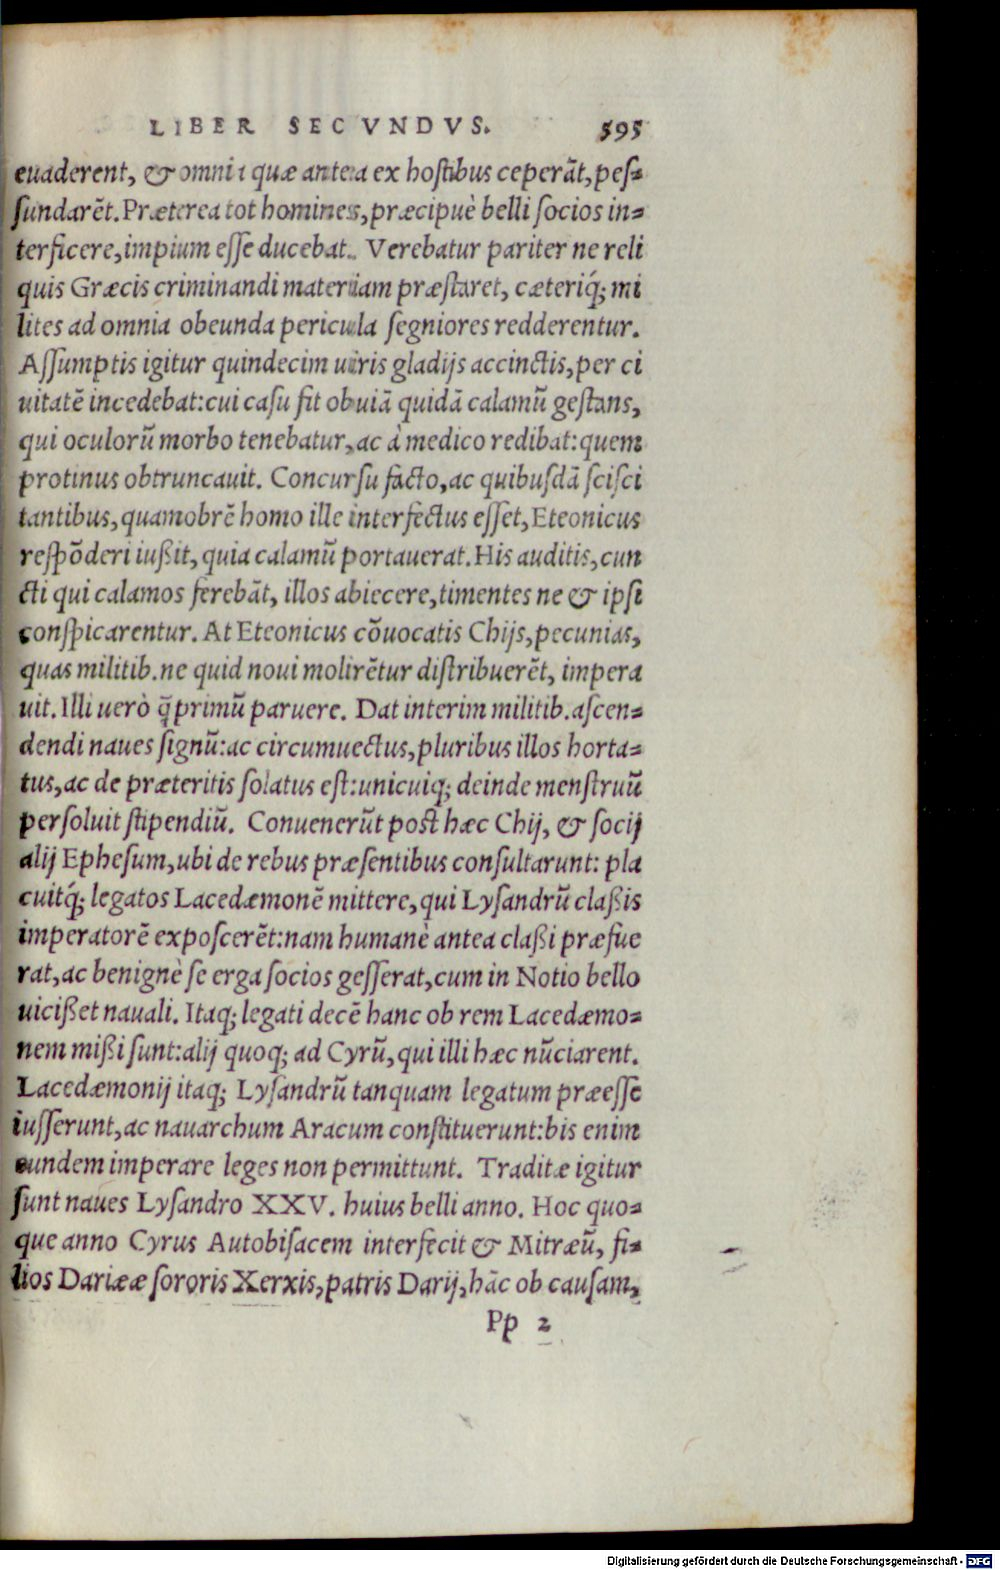 LIBER SECVNDVS. 595
euaderent, & omnia quæ antea ex hostibus ceperãt, pes-
sundarẽt. Præterea tot homines, præcipuè belli socios in-
terficere, impium esse ducebat. Verebatur pariter ne reli
quis Græcis criminandi materiam præstaret, cæteriq́; mi
lites ad omnia obeunda pericula segniores redderentur.
Assumptis igitur quindecim uiris gladijs accinctis, per ci
uitatẽ incedebat: cui casu fit obuiã quidã calamũ gestans,
qui oculorũ morbo tenebatur, ac à medico redibat: quem
protinus obtruncauit. Concursu facto, ac quibusdã scisci
tantibus, quamobrẽ homo ille interfectus esset, Eteonicus
respõderi iußit, quia calamũ portauerat. His auditis, cun
cti qui calamos ferebãt, illos abiecere, timentes ne & ipsi
conspicarentur. At Eteonicus cõuocatis Chijs, pecunias,
quas militib. ne quid noui molirẽtur distribuerẽt, impera
uit. Illi uerò q̃primũ paruere. Dat interim militib. ascen-
dendi naues signũ: ac circumuectus, pluribus illos horta-
tus, ac de præteritis solatus est: unicuiq; deinde menstruũ
persoluit stipendiũ. Conuenerũt post hæc Chij, & socij
alij Ephesum, ubi de rebus præsentibus consultarunt: pla
cuitq́; legatos Lacedæmonẽ mittere, qui Lysandrũ claßis
imperatorẽ exposcerẽt: nam humanè antea claßi præfue
rat, ac benignè se erga socios gesserat, cum in Notio bello
uicißet nauali. Itaq; legati decẽ hanc ob rem Lacedæmo-
nem mißi sunt: alij quoq; ad Cyrũ, qui illi hæc nũciarent.
Lacedæmonij itaq; Lysandrũ tanquam legatum præesse
iusserunt, ac nauarchum Aracum constituerunt: bis enim
eundem imperare leges non permittunt. Traditæ igitur
sunt naues Lysandro XXV. huius belli anno. Hoc quo-
que anno Cyrus Autobisacem interfecit & Mitræũ, fi-
lios Dariææ sororis Xerxis, patris Darij, hãc ob causam,
Pp 2
Digitalisierung gefördert durch die Deutsche Forschungsgemeinschaft - DFG